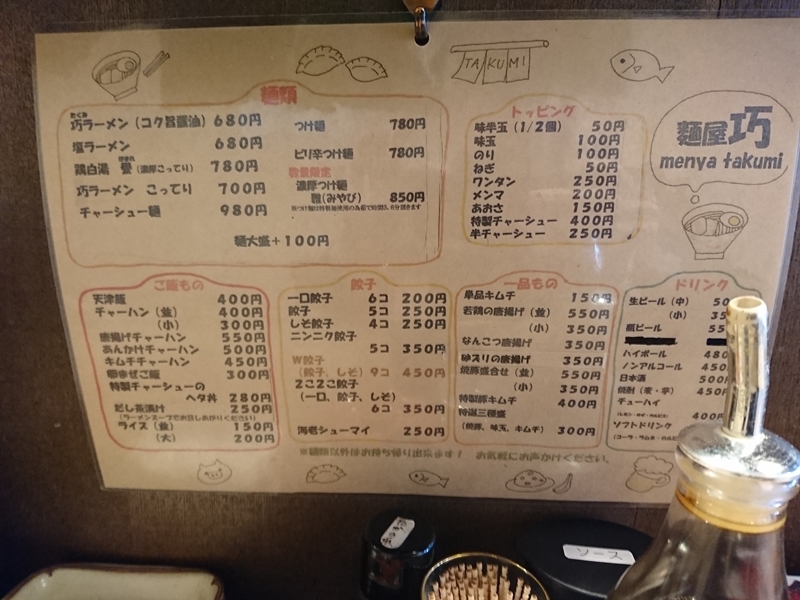 TAKUMI
麺屋 巧
menya takumi
麺類
たくみ
巧ラーメン (コク旨醤油) 680円
塩ラーメン 680円
鶏白湯 (濃厚こってり) 780円
巧ラーメン こってり 700円
チャーシュー麺 980円
つけ麺 780円
ピリ辛つけ麺 780円
数量限定
濃厚つけ麺
雅(みやび) 850円
麺大盛+100円
トッピング
味半玉 (1/2個) 50円
味玉 100円
のり 100円
ねぎ 50円
ワンタン 250円
メンマ 200円
あおさ 150円
特製チャーシュー 400円
半チャーシュー 250円
ご飯もの
天津飯 400円
チャーハン (並) 400円
(小) 300円
唐揚げチャーハン 550円
あんかけチャーハン 500円
キムチチャーハン 450円
卵まぜご飯 300円
特製チャーシューの
ヘタ丼 280円
だし茶漬け 250円
(ラーメンスープでお召しあがりください)
ライス (並) 150円
(大) 200円
餃子
一口餃子 6コ 200円
餃子 5コ 250円
しそ餃子 4コ 250円
ニンニク餃子
5コ 350円
W餃子
(餃子、しそ) 9コ 450円
2こ2こ餃子
(一口、餃子、しそ)
6コ 350円
海老シューマイ 250円
一品もの
単品キムチ 150円
若鶏の唐揚げ (並) 550円
(小) 350円
なんこつ唐揚げ 350円
砂ズリの唐揚げ 350円
焼豚盛合せ (並) 550円
(小) 350円
特製豚キムチ 400円
特選三種盛
(焼豚、味玉、キムチ) 300円
ドリンク
生ビール (中) 50
(小) 35
瓶ビール 55
ハイボール 480
ノンアルコール 450
日本酒 500
焼酎 (麦・芋) 450
チューハイ
400円
ソフトドリンク
※麺類以外はお持ち帰り出来ます! お気軽にお声かけください。
ソース